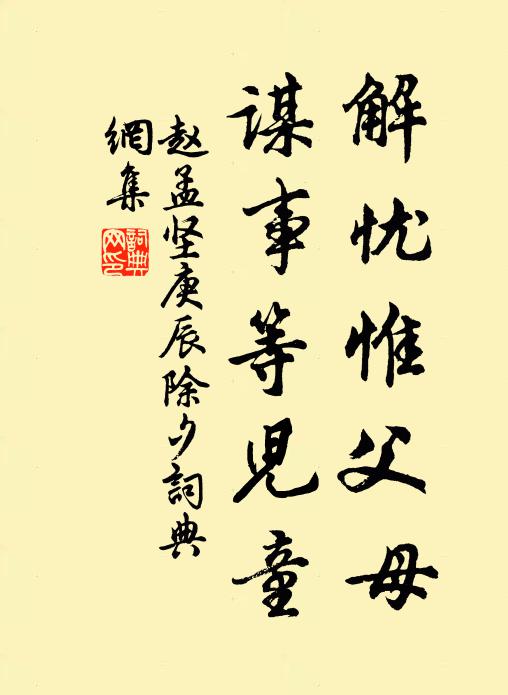 解忧惟父母
谋事等児童
赵孟坚庚辰除夕詞典
網集
詞典
网印